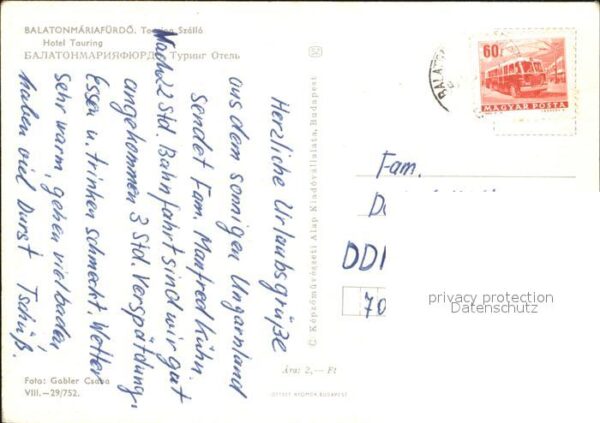 BALATONMÁRIAFÜRDŐ. Touring Szálló
Hotel Touring
БАЛАТОНМАРИЯФЮРДЁ. Туринг Отель
Herzliche Urlaubsgrüße
aus dem sonnigen Ungarnland
sendet Fam. Manfred Kühn.
Nach 22 Std. Bahnfahrt sind wir gut
angekommen 3 Std. Verspätung,
Essen u. trinken schmeckt. Wetter
sehr warm, gehen viel baden
haben viel Durst Tschüß.
Foto: Gabler Csaba
VIII.—29/752.
© Képzőművészeti Alap Kiadóvállalata, Budapest
Ára: 2,— Ft
OFFSET NYOMDA BUDAPEST
60f
MAGYAR POSTA
BALATON
Fam.
DDR
70
privacy protection
Datenschutz